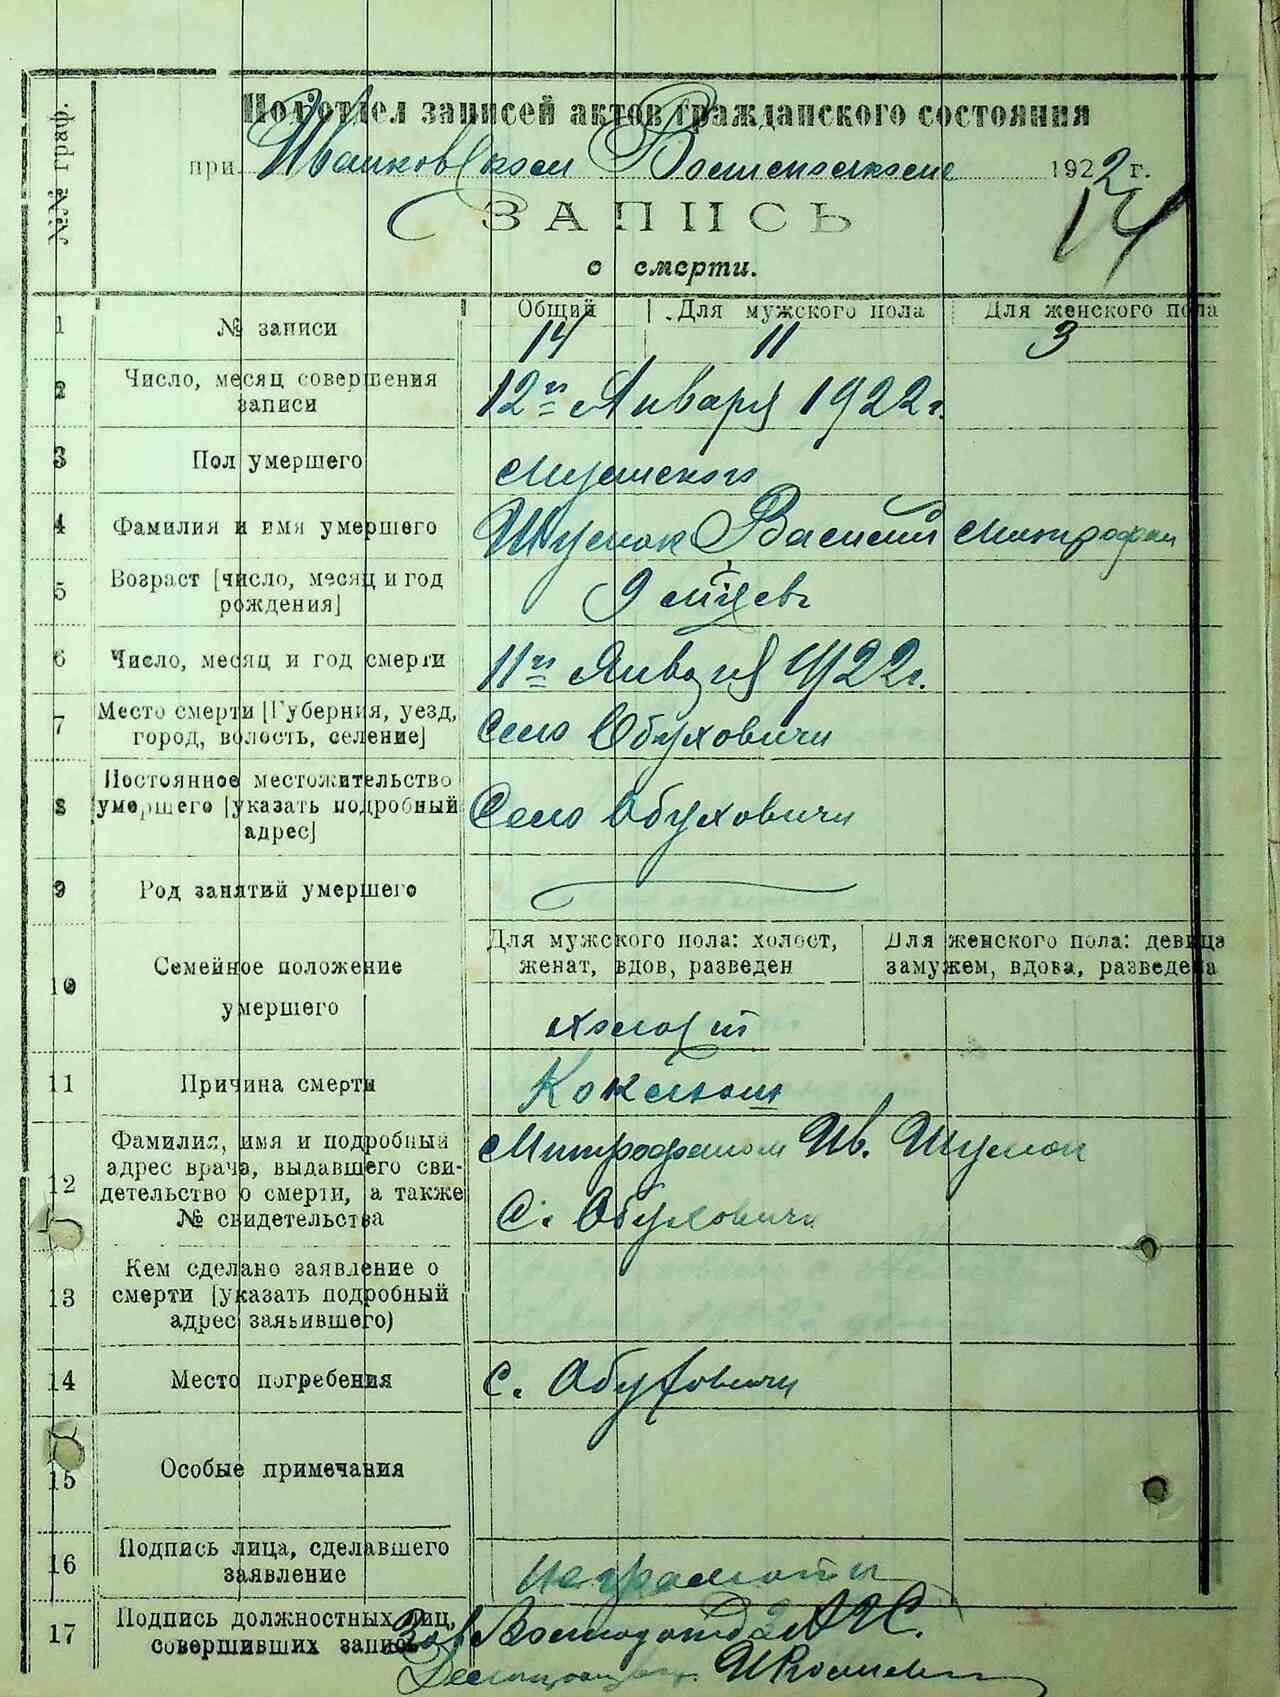 №№ граф.
Подотдел записей актов гражданского состояния
при Иванковском 1922 г.
14
ЗАПИСЬ
о смерти.
1 № записи Общий Для мужского пола Для женского пола
14 11 3
2 Число, месяц совершения
записи
12го Января 1922 г.
3 Пол умершего Мужского
4 Фамилия и имя умершего Шумок Василий Митрофан
5 Возраст [число, месяц и год
рождения]
9 м-цев
6 Число, месяц и год смерти 11го Января 1922 г.
7 Место смерти [Губерния, уезд,
город, волость, селение]
Село Обуховичи
8 Постоянное местожительство
умершего [указать подробный
адрес]
Село Обуховичи
9 Род занятий умершего
10 Семейное положение
умершего
Для мужского пола: холост,
женат, вдов, разведен
Для женского пола: девица
замужем, вдова, разведена
холост
11 Причина смерти Коклюш
12 Фамилия, имя и подробный
адрес врача, выдавшего сви-
детельство о смерти, а также
№ свидетельства
Митрофаном Ив. Шумок
С. Обуховичи
13 Кем сделано заявление о
смерти [указать подробный
адрес заявившего)
14 Место погребения с. Обуховичи
15 Особые примечания
16 Подпись лица, сделавшего
заявление
неграмотны
17 Подпись должностных лиц,
совершивших запись
Зав.